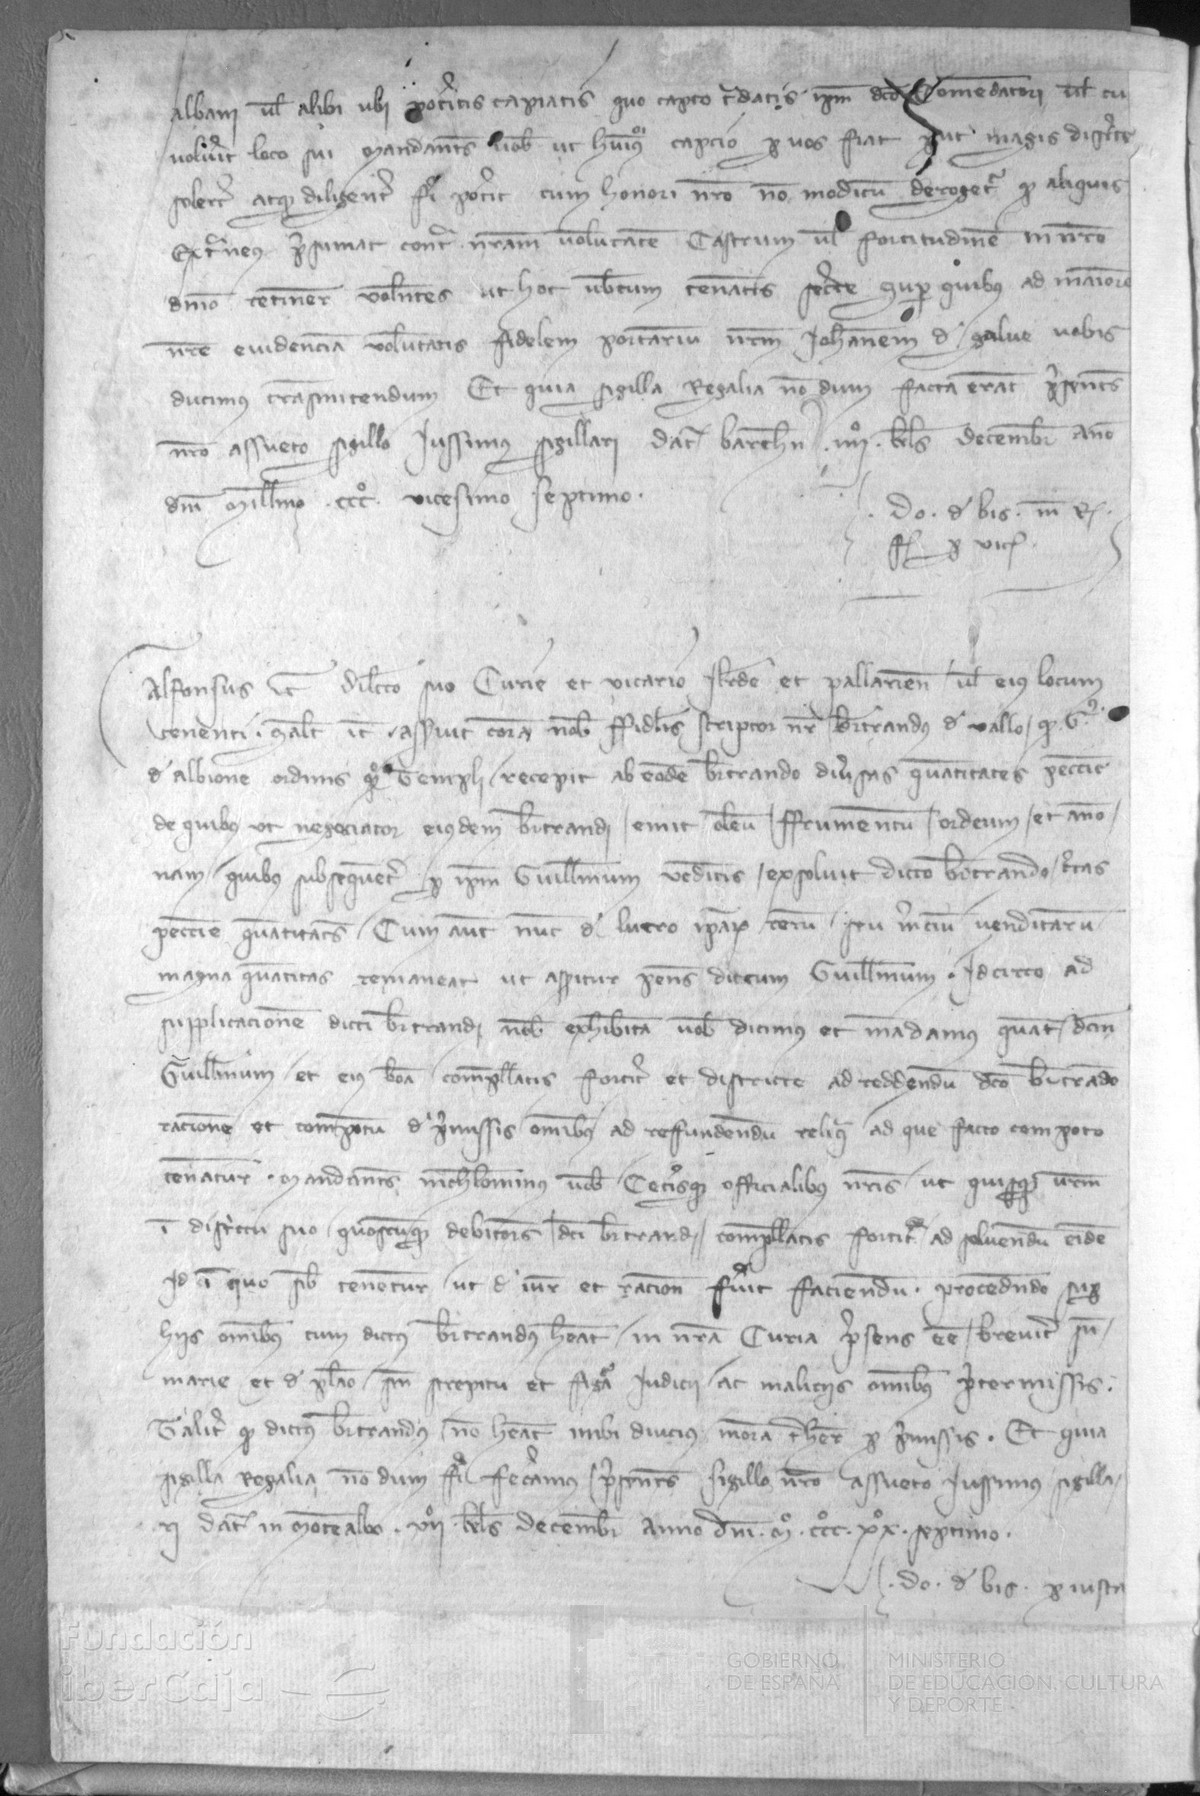 Albani ul alibi ubi pot'itis capiatis quo capto t'datis ipm dco Comendatori ul cu
voluit loco sui mandantes vob ut huiusmoi capcio p vos fiat put magis discrete
solert' atq diligent' fi' pot'it cum honori nro no modicu deroget' q aliquis
ext'neus p'sumat cont' nram voluntate Castrum ul fortitudine in nro
dnio retiner volentes ut hoc ubtum teneatis secrete sup quibus ad maiore
nre evidencia voluntatis fidelem portariu nrm Johannem d' galve vobis
ducimus trasmitendum Et quia sigilla Regalia nodum facta erant p'sentes
nro assueto sigillo Iussimus sigillari dat' barchn . iiii . kls decembr Ano
dni Millimo . ccc . vicesimo septimo .
. Do . d' bis . m R .
ff p vic
Alfonsus etc Dilecto suo Curie et vicario Ilerde et pallarien ul eius locum
tenenti . salt etc . assuit cora nob ffidelis scriptor nr Brtrandus d' vallo q G.
d' albione ordinis q° Templi recepit ab eode Brtrando div'sas quantitates peccie
de quibus ut negociator eiusdem Brtrandi emit oleu ffrumentu ordeum et ano
nam quibus subsequent' p ipm Guillmum venditis exsolvit dicto Brtrando c'tas
peccie quantitates Cum aut nunc d' lucro ipar reru seu m'ciu venditaru
magna quantitas remaneat ut asseritur penes dictum Guillmum . Idcirco ad
supplicacione dicti Brtrandi nob exhibita vob dicimus et mandamus quat dcm
Guillmum et eius bona compellatis fortit' et districte ad reddendu dco Brtrando
racione et compotu d' p'missis omibus ad reffundendu reliqua ad que facto compoto
teneatur . mandantes nichilominus vob Cet'isq officialibus nris ut quisq vrm
i districtu suo quoscumq debitores dci Brtrandi compellatis fortit' ad solvendu eide
Id i quo sib tenentur ut d' iure et racion fu'it faciendu . procedendo sup
hiis omibus cum dictus Brtrandus heat in nra Curia p'sens ee brevit' su
marie et d' plano sin strepitu et figa Iudicii ac maliciis omibus p'termissis .
Talit' q dictus Brtrandus no heat inibi diucius mora t'here p p'missis . Et quia
sigilla Regalia no dum fi' fec'amus p'sentes sigillo nro assueto Iussimus sigilla
ri dat' in Montealbo . xvii . kls decembr anno dni . M . ccc . xx . septimo .
. Do . d' bis . p iusta
Fundación
iberCaja
GOBIERNO
DE ESPAÑA
MINISTERIO
DE EDUCACIÓN, CULTURA
Y DEPORTE